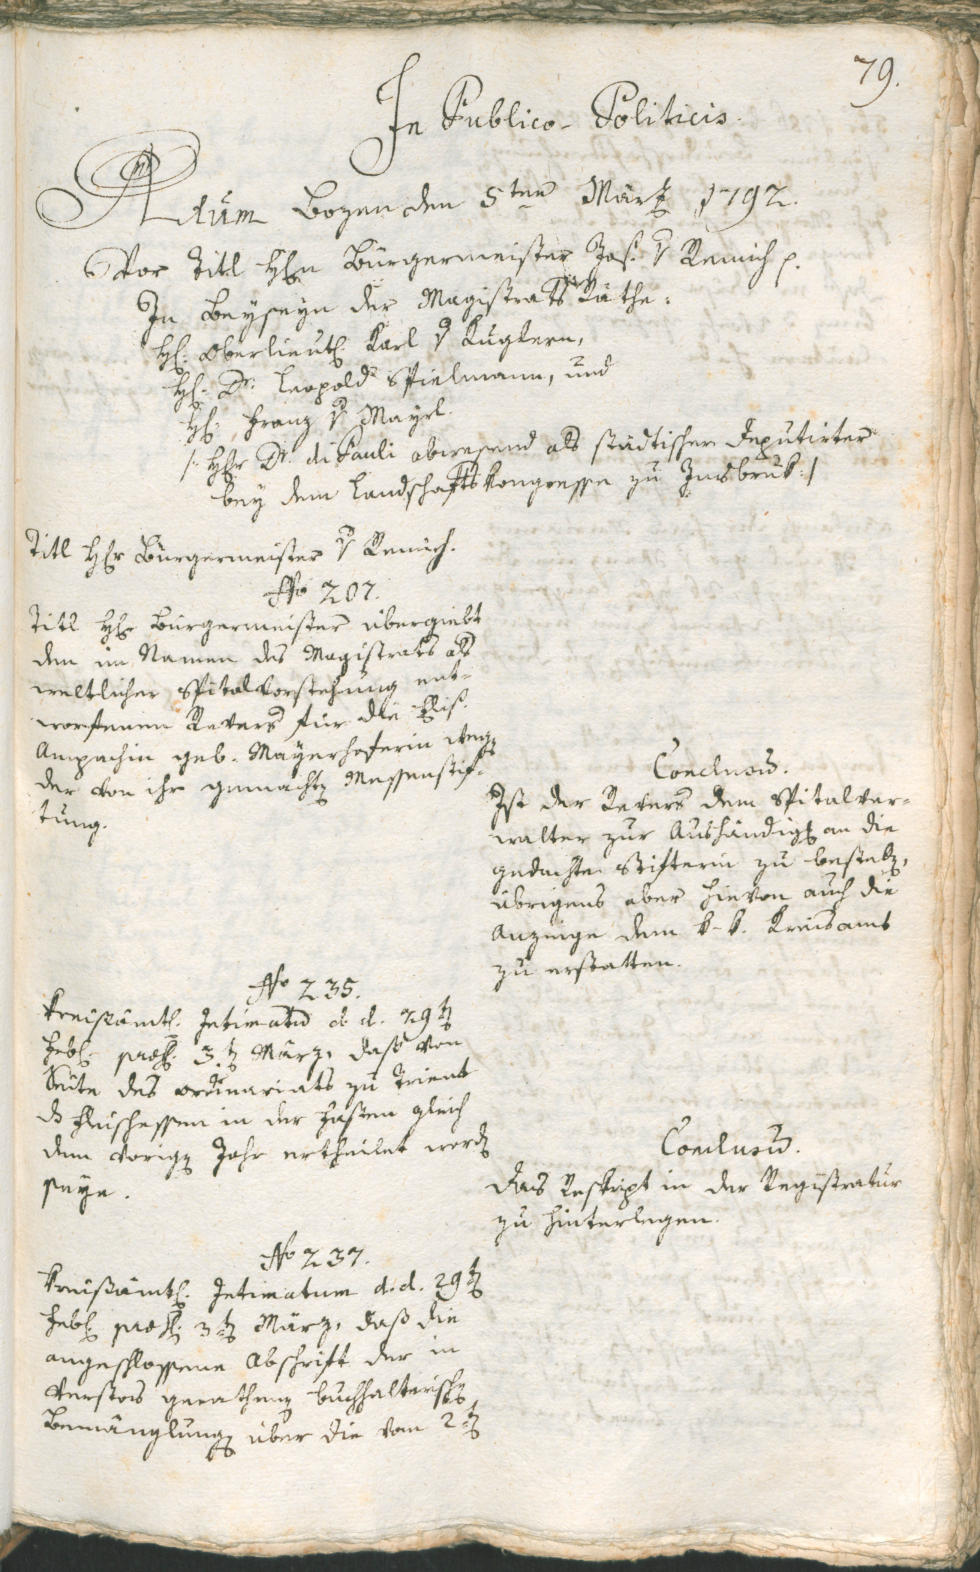 79.
In Publico-Politicis.
Actum Bozen den 5ten März 1792.
Vor Titl Hℓn Bürgermeister Jos. v Remich p.
In Beyseyn der Magistrats Räthe:
Hℓ. Oberlieutℓ. Karl v Kuglern,
Hℓ. Dr. Leopold Spielmann, und
Hℓ. Franz v Mayrl.
/: Hℓr Dr. di Pauli abwesend als städtischer Deputirter
bey dem Landschafts Kongresse zu Innsbruk :/
Titl Hℓr Bürgermeister v Remich.
No 207.
Titl Hℓr Bürgermeister übergiebt
den im Namen des Magistrats als
weltlicher Spitalvorstehung ent-
worfenen Revers für die Elis.
Ampachin geb. Mayerhoferin weg.
der von ihr gemachtℓ Messenstif-
tung.
Conclusū.
Ist der Revers dem Spitalver-
walter zur Aushändigℓ an die
gedachte Stifterin zu bestelℓ,
übrigens aber hievon auch die
Anzeige dem k-k. Kreisamt
zu erstatten.
No 235.
Kreisämtℓ. Intimatū d. d. 29tℓ
Febℓ. præsℓ. 3.tℓ März, daß von
Seite des ordinariats zu Trient
ds Fleischessen in der Fasten gleich
dem vorigℓ Jahr ertheilet wordℓ
seye.
Conclusū.
Das Reskript in der Registratur
zu hinterlegen.
No 237.
Kreisämtℓ. Intimatum d. d. 29tℓ
Febℓ. præsℓ. 3tℓ März, daß die
angeschlossene Abschrift der in
Verstos gerathenℓ buchhalterischℓ
Bemänglungℓ über die vom 2tℓ